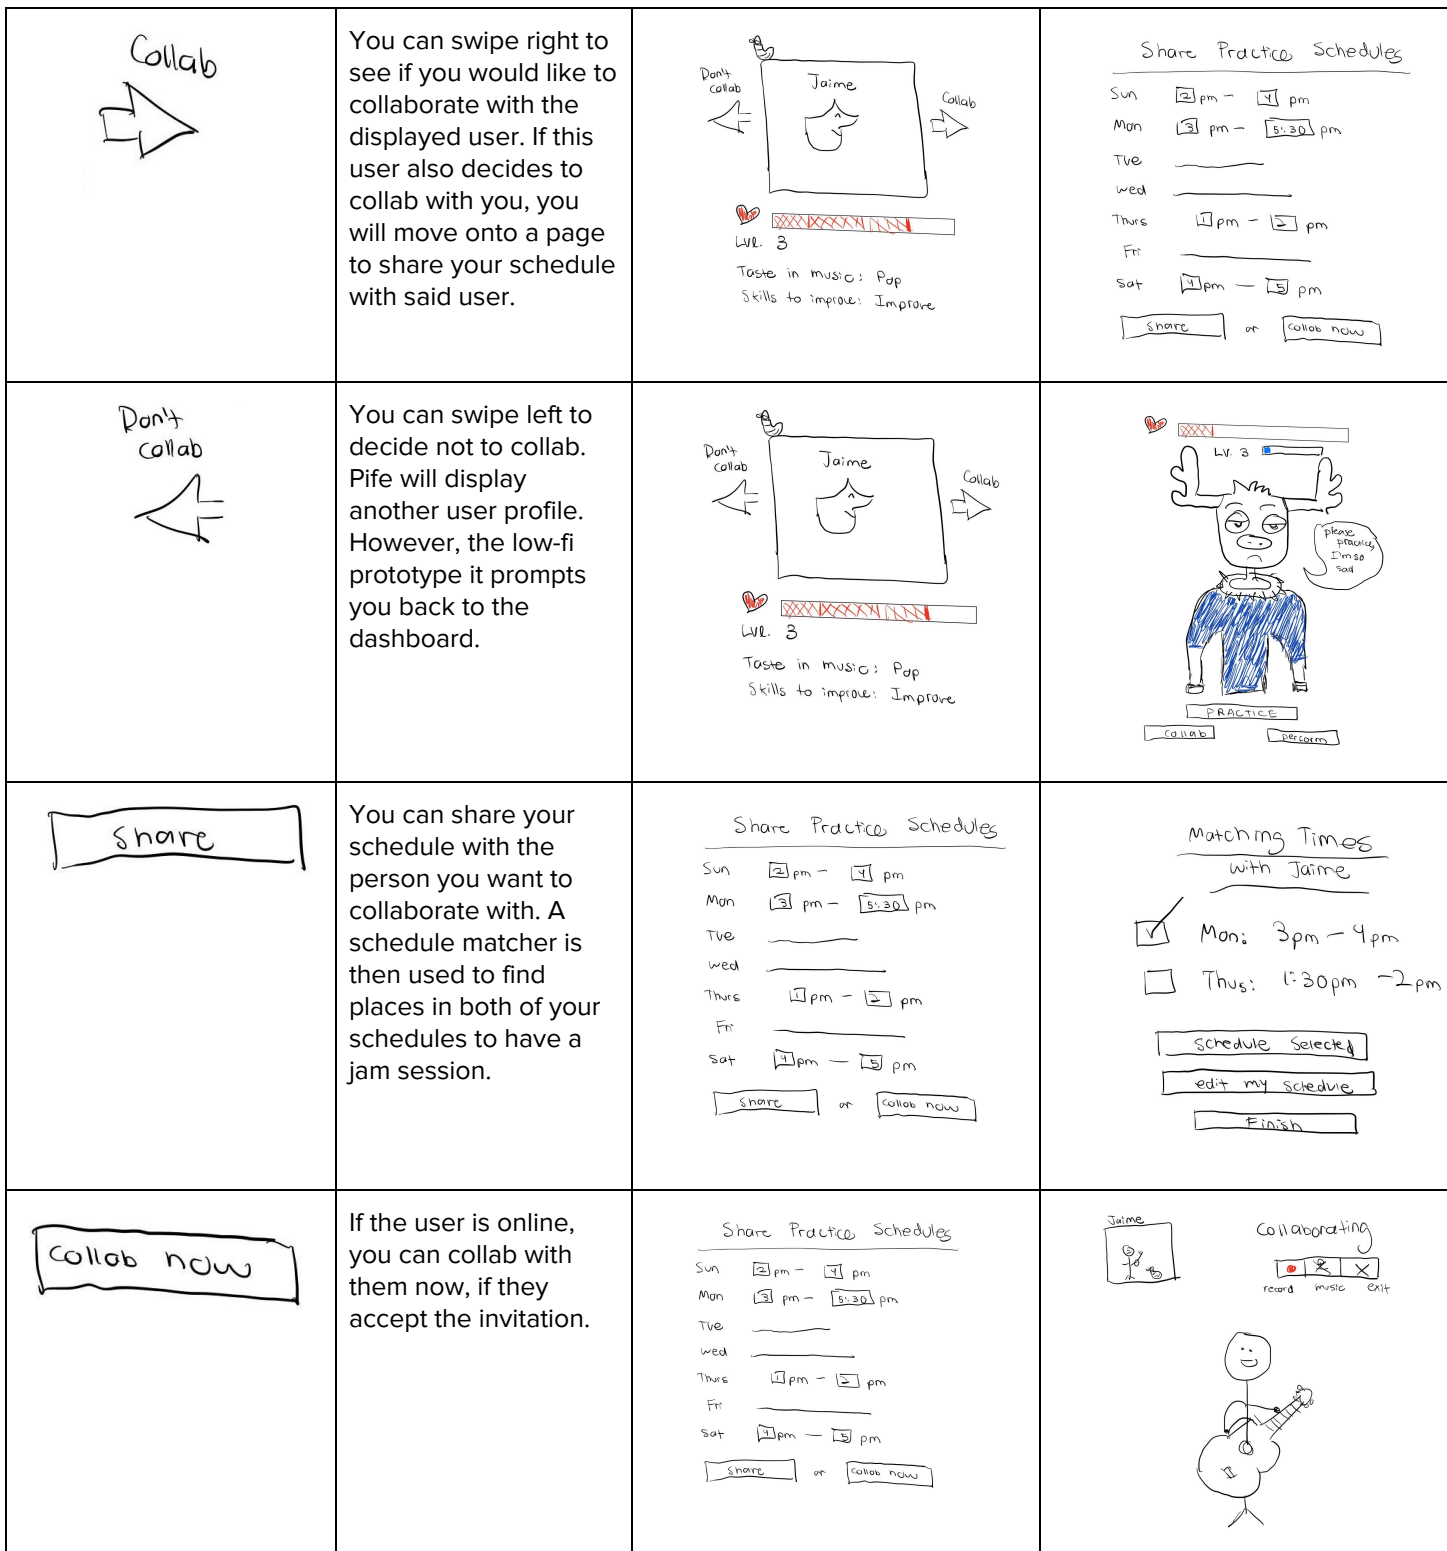 Collab
You can swipe right to
see if you would like to
collaborate with the
displayed user. If this
user also decides to
collab with you, you
will move onto a page
to share your schedule
with said user.
Don't
collab
Jaime
Collab
Lvl. 3
Taste in music: Pop
Skills to improve: Improve
Share Practice Schedules
Sun 2 pm - 4 pm
Mon 3 pm - 5:30 pm
Tue
Wed
Thurs 1 pm - 2 pm
Fri
Sat 4 pm - 5 pm
Share or collab now
Don't
collab
You can swipe left to
decide not to collab.
Pife will display
another user profile.
However, the low-fi
prototype it prompts
you back to the
dashboard.
Don't
collab
Jaime
Collab
Lvl. 3
Taste in music: Pop
Skills to improve: Improve
LV. 3
please
practice,
I'm so
sad
PRACTICE
collab perform
Share
You can share your
schedule with the
person you want to
collaborate with. A
schedule matcher is
then used to find
places in both of your
schedules to have a
jam session.
Share Practice Schedules
Sun 2 pm - 4 pm
Mon 3 pm - 5:30 pm
Tue
Wed
Thurs 1 pm - 2 pm
Fri
Sat 4 pm - 5 pm
Share or collab now
Matching Times
with Jaime
Mon: 3pm - 4pm
Thus: 1:30pm - 2pm
Schedule Selected
edit my schedule
Finish
collab now
If the user is online,
you can collab with
them now, if they
accept the invitation.
Share Practice Schedules
Sun 2 pm - 4 pm
Mon 3 pm - 5:30 pm
Tue
Wed
Thurs 1 pm - 2 pm
Fri
Sat 4 pm - 5 pm
Share or collab now
Jaime
Collaborating
record music exit